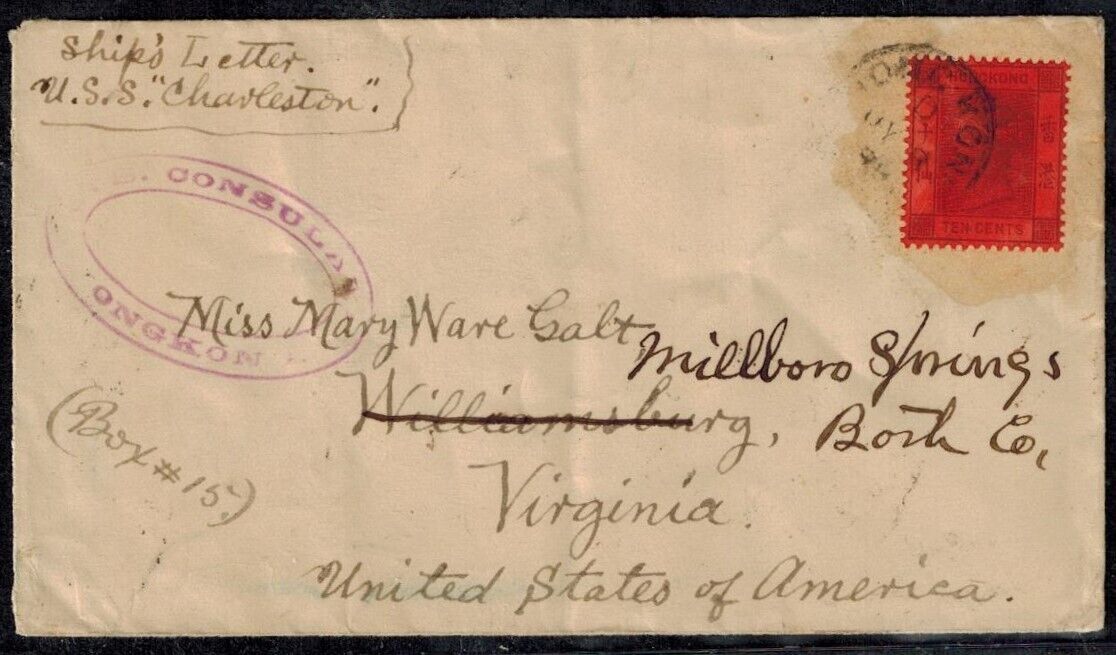 Ship's Letter.
U.S.S. "Charleston".
HONGKONG
TEN CENTS
CONSULA
ONGKON
Miss Mary Ware Galt,
Millboro Springs
Williamsburg, Bath Co,
(Box #15.)
Virginia.
United States of America.